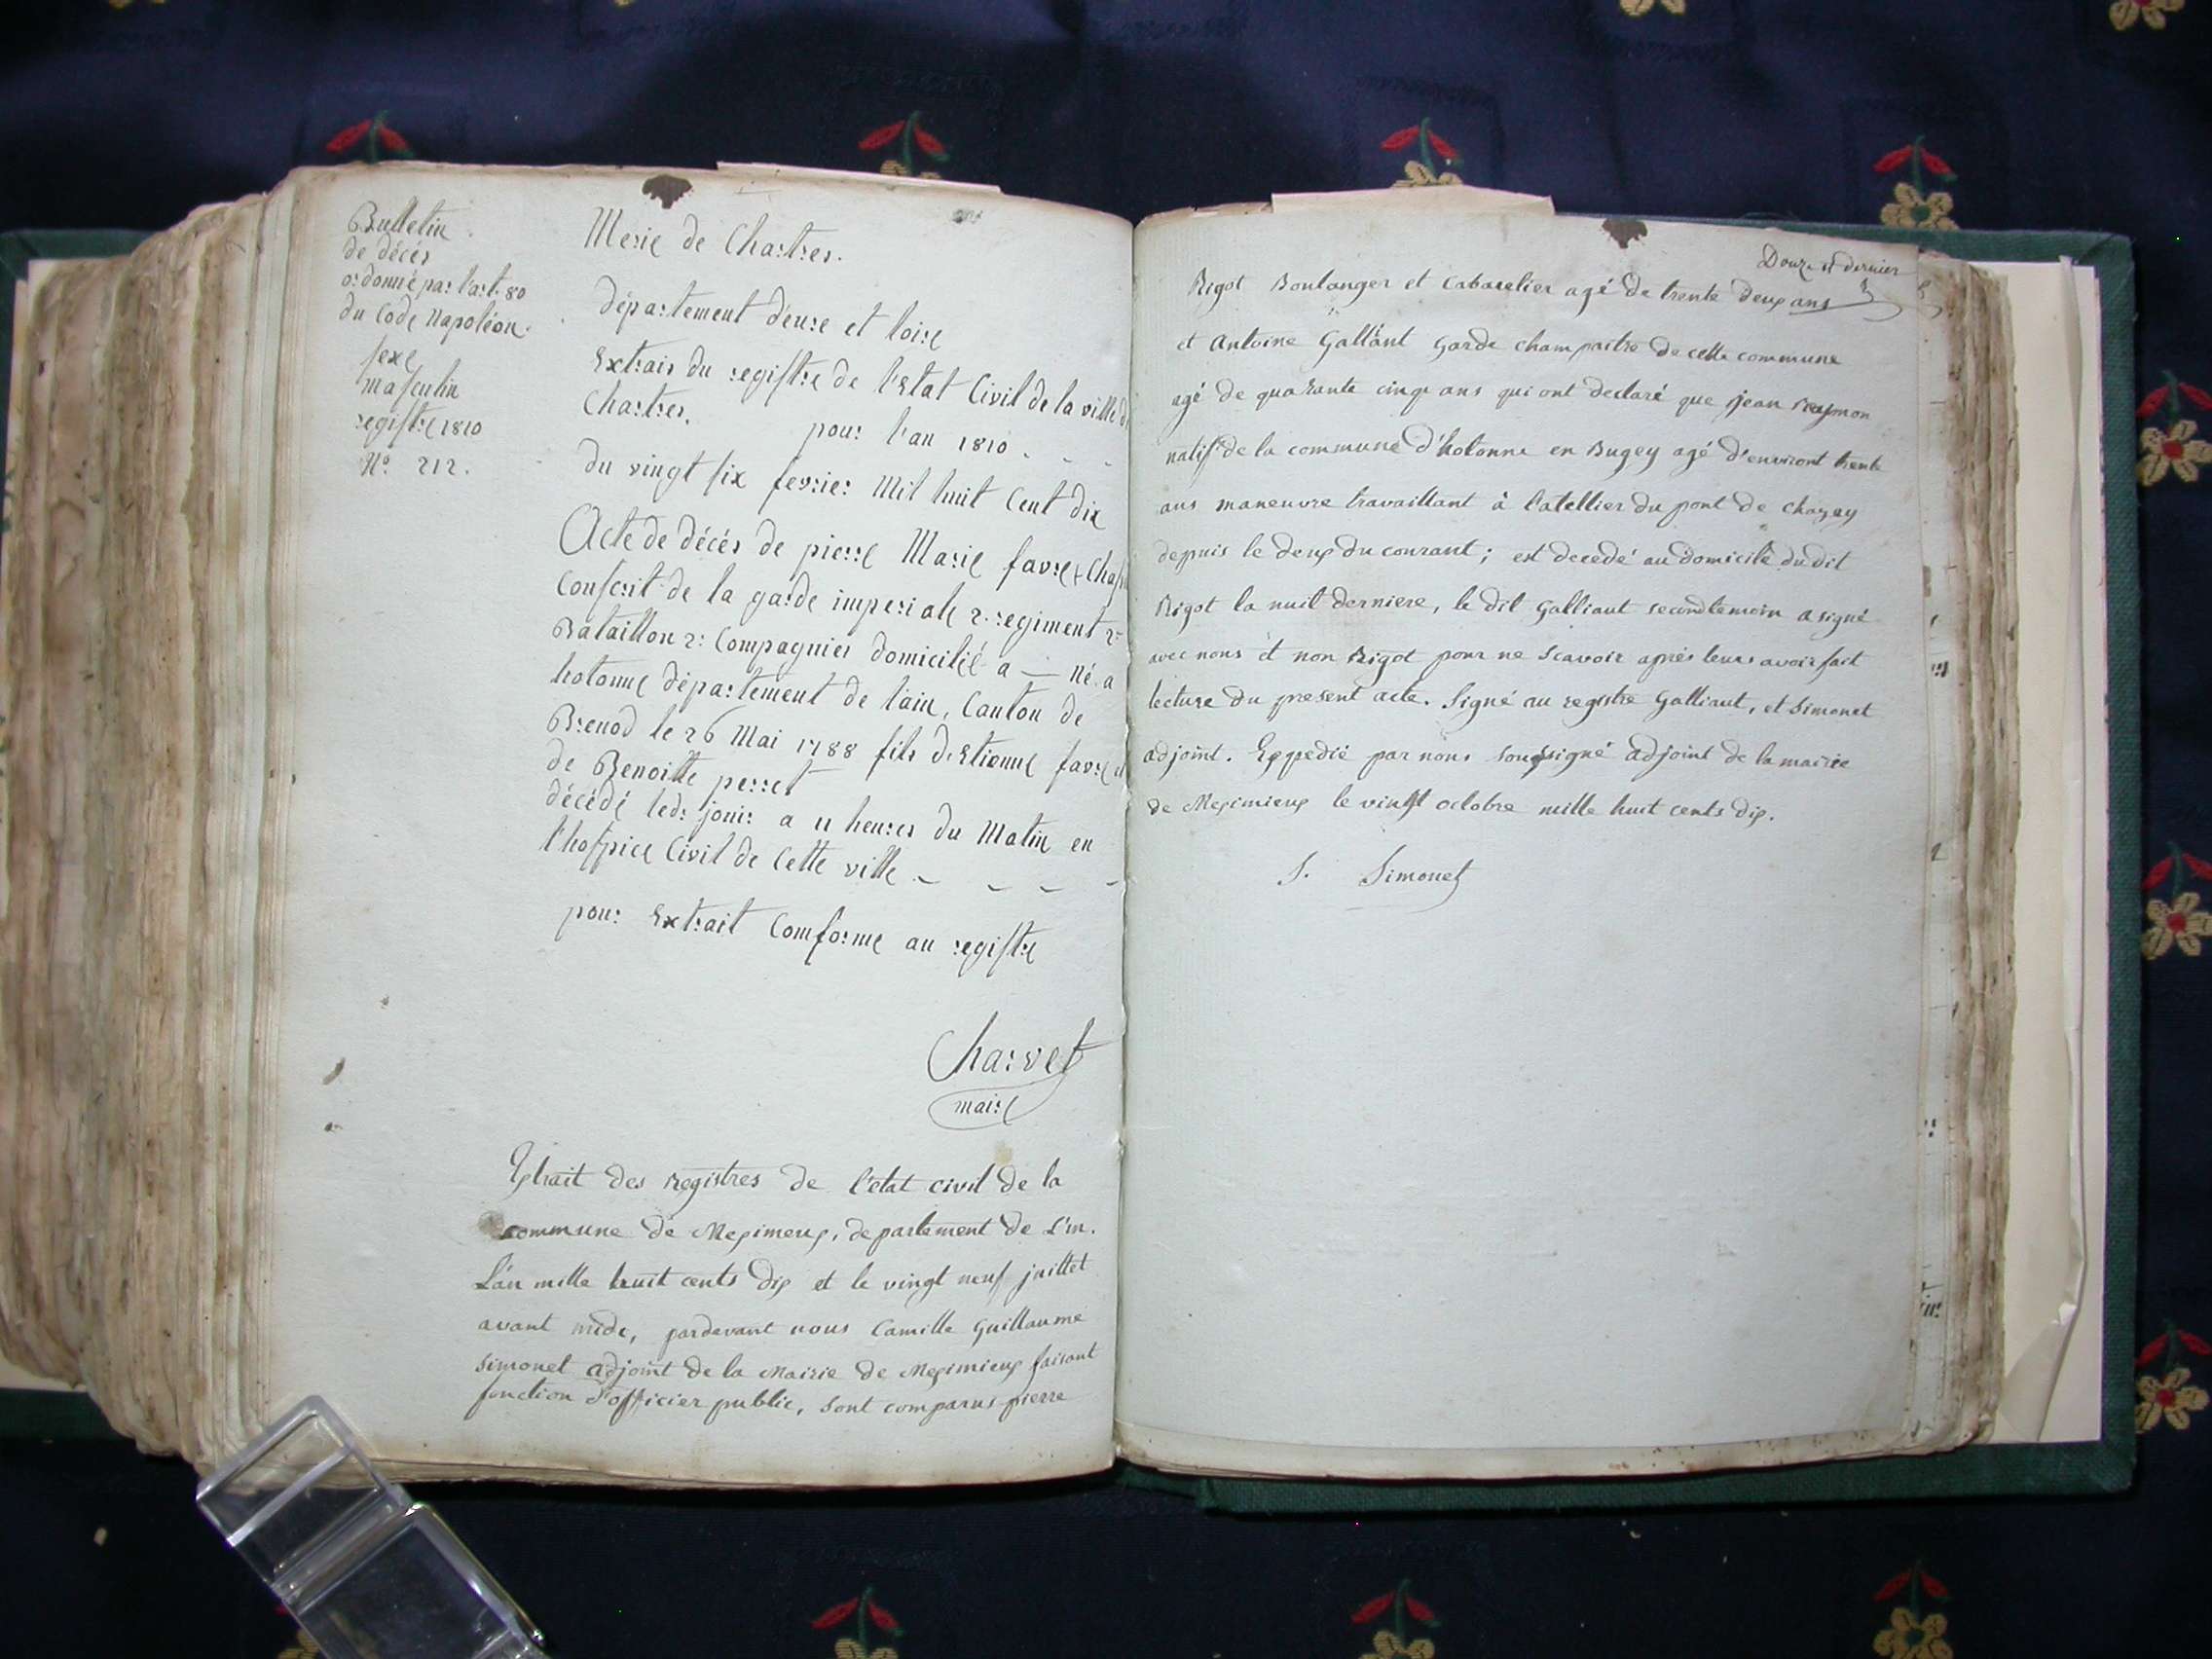 Bulletin
de décés
ordonné par l'art. 80
du Code Napoléon.
sexe
masculin
registre 1810
N.º 212.
Merie de Chartres.
département deure et loire
Extrais du registre de l'Etat Civil de la ville d
Chartres. pour l'an 1810 . - -
du vingt six fevrier Mil huit Cent dix
Acte de décés de pierre Marie favre
Conscrit de la garde imperiale 2. regiment 2e
Bataillon 2e Compagnies domicilié a — Né a
hotonne département de l'ain, Canton de
Brenod le 26 Mai 1788 fils d'Etienne favre et
de Benoitte perret
décédé led. jour a 11 heures du Matin en
l'hospice Civil de Cette ville - - - -
pour Extrait Comforme au registre
Charvet
maire
Extrait des registres de l'etat civil de la
commune de Meximeux, departement de L'in.
L'an mille huit cents dix et le vingt neuf juillet
avant midi, pardevant nous Camille Guillaume
Simonet adjoint de la Mairie de Meximieux faisant
fonction d'officier public, sont comparus pierre
Douze et dernier
Rigot Boulanger et Cabaretier agé de trente deux ans
et Antoine Galliant Garde champaitre de cette commune
agé de quarante cinq ans qui ont declaré que jean Reymon
natif de la commune d'hotonne en Bugey agé d'environt trente
ans maneuvre travaillant à l'atellier du pont de Chazey
depuis le deux du courant ; est decedé au domicile du dit
Rigot la nuit derniere, le dit Galliaut second temoin a signé
avec nous et non Rigot pour ne scavoir après leurs avoir fait
lecture du present acte. Signé au registre Galliaut, et Simonet
adjoint. Expedié par nous soussigné adjoint de la mairie
de Meximieux le vingt octobre mille huit cents dix.
S. Simonet